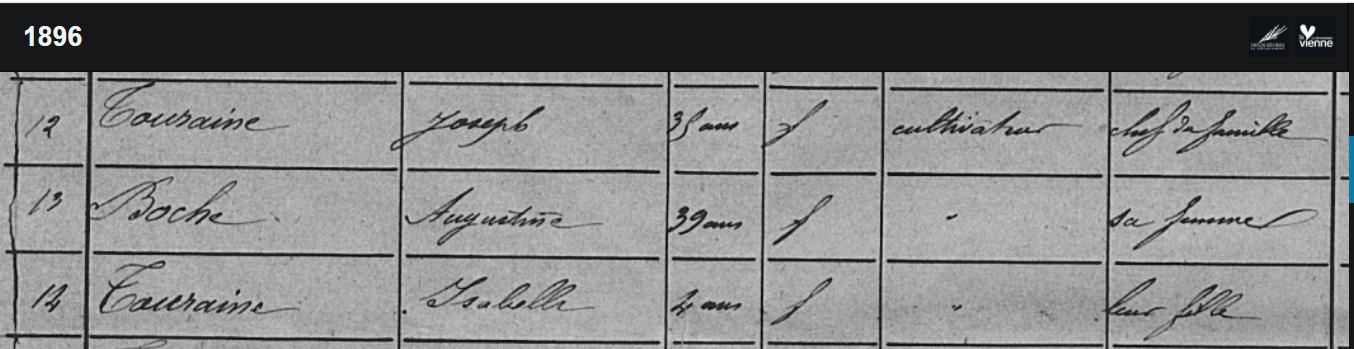 1896
la vienne
12 Touraine Joseph 35 ans f cultivateur chef de famille
13 Boche Augustine 39 ans f " sa femme
14 Touraine Isabelle 4 ans f " leur fille